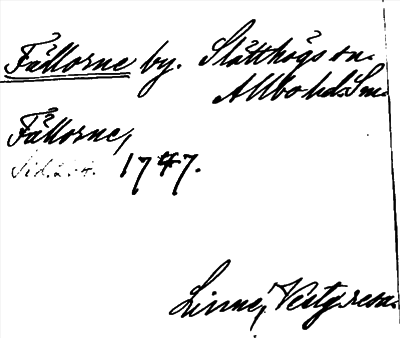 Fållorne by. Slätthögs sn.
Allbo hd. Sm.
Fållorne,
1747.
Linné, Vestg. resa.